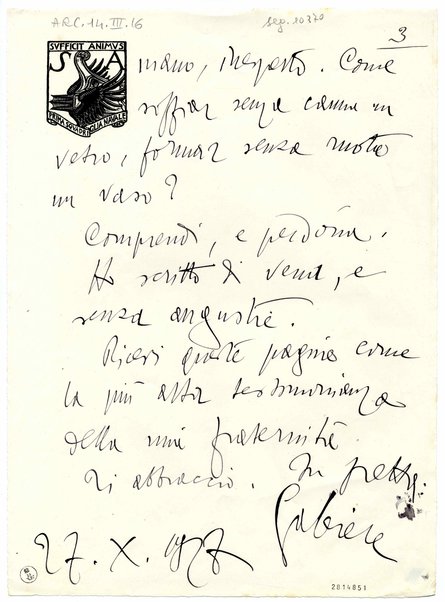 ARC.14.III.16
seg. 10370
3
SUFFICIT ANIMUS
S A
PRIMA SQUADRIGLIA NAVALE
mano, inesperto. Come
soffiar senza canna un
vetro, formar senza mota
un vaso?
Comprendi, e perdona.
Ho scritto di vena, e
senza angustia.
Ricevi queste pagine come
la più alta testimonianza
della mia fraternità.
Ti abbraccio. In fretta.
Gabriele
27. X. 1927
2814851